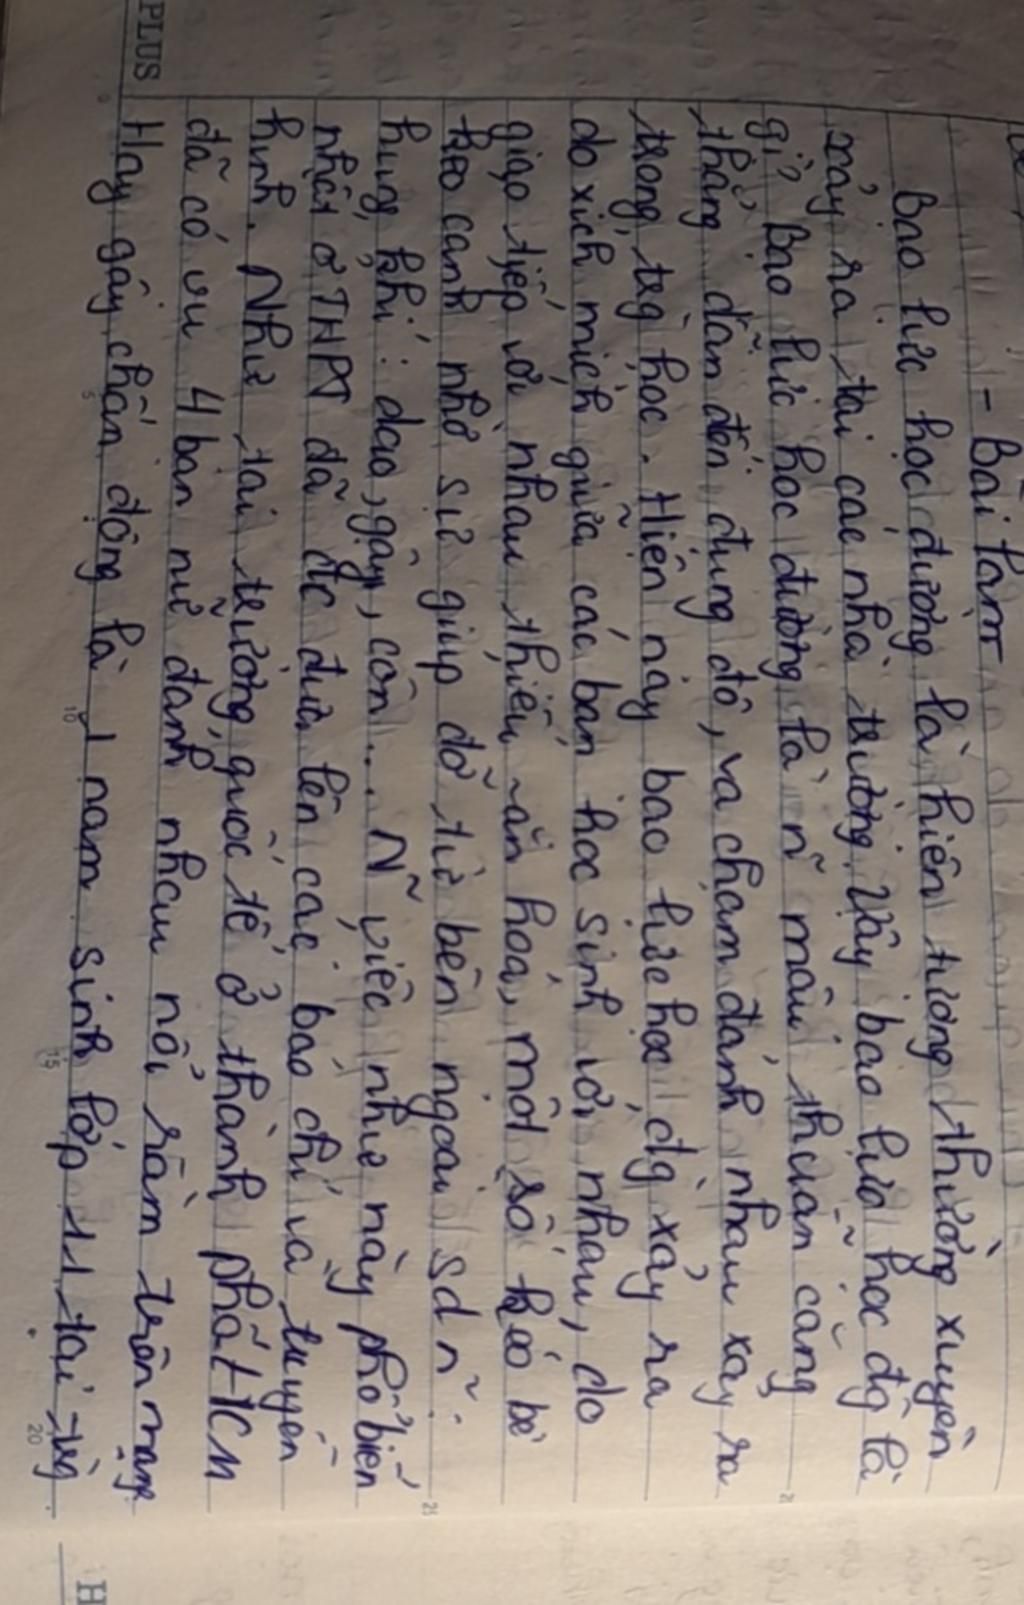 - Bài làm
Bạo lực học đường là hiện tượng thường xuyên
xảy ra tại các nhà trường. Vậy bạo lực học đg là
gì? Bạo lực học đường là n~ mâu thuẫn căng
thẳng dẫn đến đụng độ, va chạm đánh nhau xảy ra
trong trg học. Hiện nay bạo lực học đg xảy ra
do xích mích giữa các bạn học sinh với nhau, do
giao tiếp với nhau thiếu văn hoá, một số kéo bè
kéo cánh nhờ sự giúp đỡ từ bên ngoài sd n~
hung khí: dao, gậy, côn... N~ việc như này phổ biến
nhất ở THPT đã đc đưa lên các báo chí và truyền
hình. Như tại trường quốc tế ở thành phố HCM
đã có vụ 4 bạn nữ đánh nhau nổi rầm trên mạng
Hay gây chấn động là 1 nam sinh lớp 11 tại trg
PLUS
H